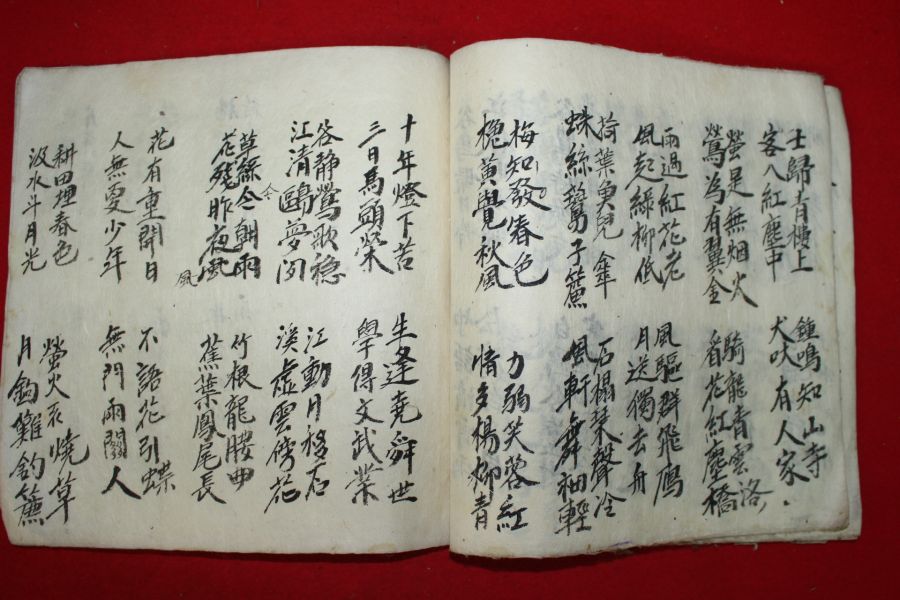 士歸青樓上
客入紅塵中
螢是無烟火
鶯為有翼金
雨過紅花老
風起綠柳低
荷葉魚兒傘
蛛絲鷰子簾
梅知發春色
黃覺秋風
鍾鳴知山寺
犬吠有人家
騎龍青雲洛
看花紅塵橋
風驅群飛鴈
月送獨去舟
石榻琴聲冷
風軒舞袖輕
力弱笑蓉紅
情多楊柳青
十年燈下苦
三日馬頭榮
谷靜鶯歌穩
江清鷗夢閑
草綠今朝雨
花殘昨夜風
風
花有重開日
人無更少年
耕田埋春色
汲水斗月光
生逢堯舜世
學得文武業
江動月移石
溪虛雲傍花
竹根龍腰曲
蕉葉鳳尾長
不語花引蝶
無門雨關人
螢火衣燒草
月鉤難釣簾